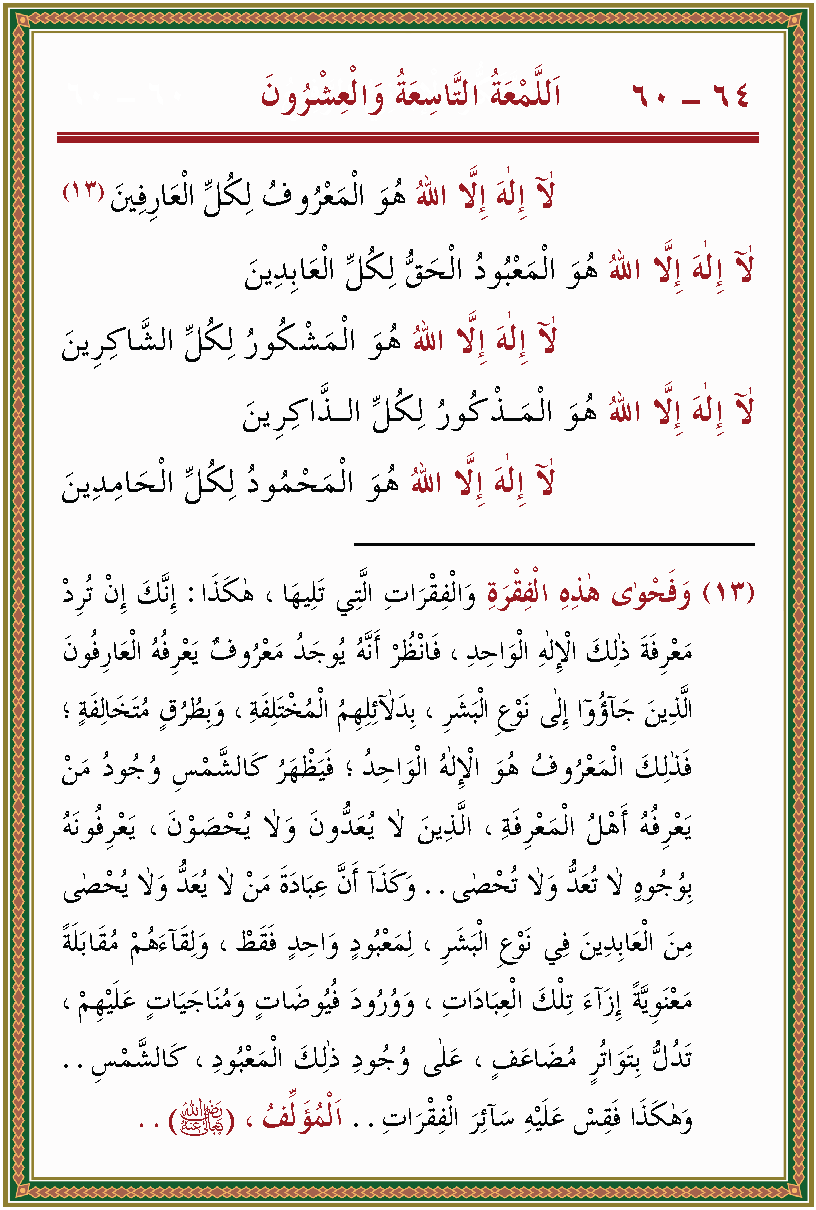 ٦٤ – ٦٠ اَللَّمْعَةُ التَّاسِعَةُ وَالْعِشْرُونَ
لَٓا إِلٰهَ إِلَّا اللهُ هُوَ الْمَعْرُوفُ لِكُلِّ الْعَارِفِينَ (١٣)
لَٓا إِلٰهَ إِلَّا اللهُ هُوَ الْمَعْبُودُ الْحَقُّ لِكُلِّ الْعَابِدِينَ
لَٓا إِلٰهَ إِلَّا اللهُ هُوَ الْمَشْكُورُ لِكُلِّ الشَّاكِرِينَ
لَٓا إِلٰهَ إِلَّا اللهُ هُوَ الْمَـذْكُورُ لِكُلِّ الـذَّاكِرِينَ
لَٓا إِلٰهَ إِلَّا اللهُ هُوَ الْمَحْمُودُ لِكُلِّ الْحَامِدِينَ
(١٣) وَفَحْوٰى هٰذِهِ الْفِقْرَةِ وَالْفِقْرَاتِ الَّتِي تَلِيهَا ، هٰكَذَا : إِنَّكَ إِنْ تُرِدْ
مَعْرِفَةَ ذٰلِكَ الْإِلٰهِ الْوَاحِدِ ، فَانْظُرْ أَنَّهُ يُوجَدُ مَعْرُوفٌ يَعْرِفُهُ الْعَارِفُونَ
الَّذِينَ جَآؤُوا إِلٰى نَوْعِ الْبَشَرِ ، بِدَلَٓائِلِهِمُ الْمُخْتَلِفَةِ ، وَبِطُرُقٍ مُتَخَالِفَةٍ ؛
فَذٰلِكَ الْمَعْرُوفُ هُوَ الْإِلٰهُ الْوَاحِدُ ؛ فَيَظْهَرُ كَالشَّمْسِ وُجُودُ مَنْ
يَعْرِفُهُ أَهْلُ الْمَعْرِفَةِ ، الَّذِينَ لٰا يُعَدُّونَ وَلٰا يُحْصَوْنَ ، يَعْرِفُونَهُ
بِوُجُوهٍ لٰا تُعَدُّ وَلٰا تُحْصٰى . . وَكَذَآ أَنَّ عِبَادَةَ مَنْ لٰا يُعَدُّ وَلٰا يُحْصٰى
مِنَ الْعَابِدِينَ فِي نَوْعِ الْبَشَرِ ، لِمَعْبُودٍ وَاحِدٍ فَقَطْ ، وَلِقَآءَهُمْ مُقَابَلَةً
مَعْنَوِيَّةً إِزَآءَ تِلْكَ الْعِبَادَاتِ ، وَوُرُودَ فُيُوضَاتٍ وَمُنَاجَيَاتٍ عَلَيْهِمْ ،
تَدُلُّ بِتَوَاتُرٍ مُضَاعَفٍ ، عَلٰى وُجُودِ ذٰلِكَ الْمَعْبُودِ ، كَالشَّمْسِ . .
وَهٰكَذَا فَقِسْ عَلَيْهِ سَآئِرَ الْفِقْرَاتِ . . اَلْمُؤَلِّفُ ، (رَضِيَ اللهُ تَعَالَى عَنْهُ) . .